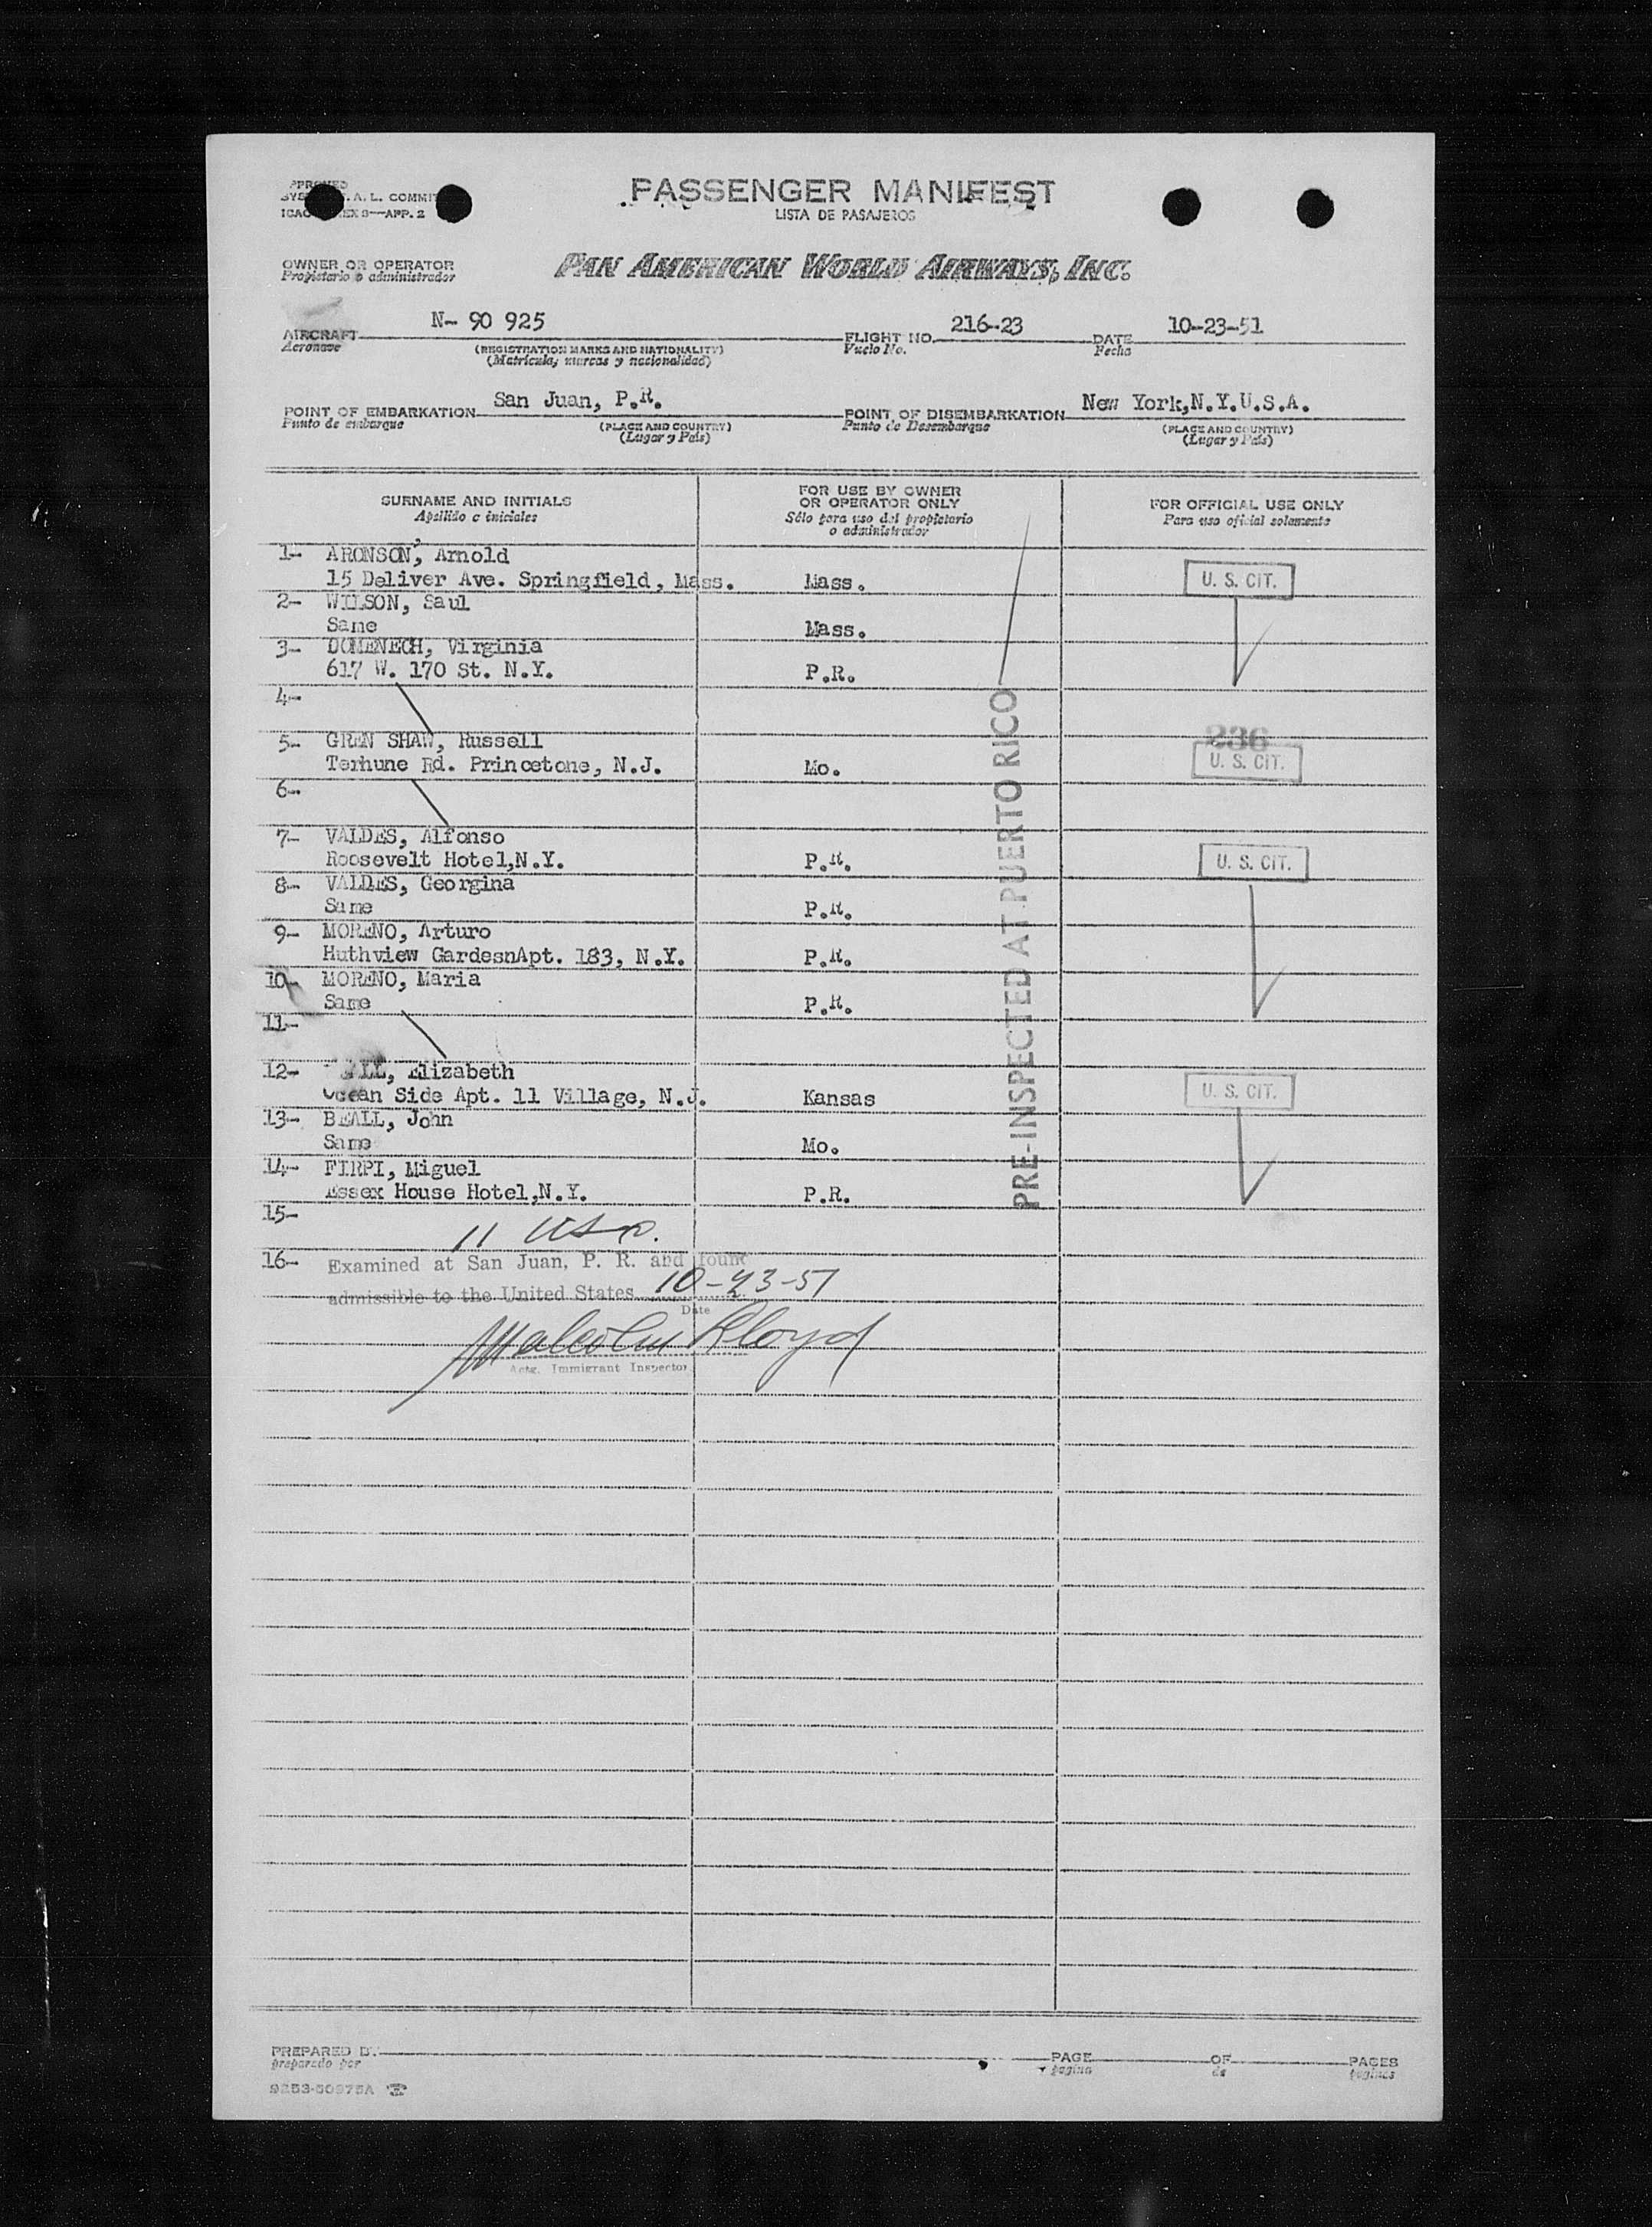 PASSENGER MANIFEST
LISTA DE PASAJEROS
A. L.
ICAO 9—APP. 2
OWNER OR OPERATOR
Propietario o administrador
PAN AMERICAN WORLD AIRWAYS, INC.
AIRCRAFT N- 90 925 FLIGHT NO. 216-23 DATE 10-23-51
Aeronave (REGISTRATION MARKS AND NATIONALITY) Vuelo No. Fecha
(Matrícula, marcas y nacionalidad)
POINT OF EMBARKATION San Juan, P.R. POINT OF DISEMBARKATION New York,N.Y.U.S.A.
Punto de embarque (PLACE AND COUNTRY) Punto de Desembarque (PLACE AND COUNTRY)
(Lugar y País) (Lugar y País)
SURNAME AND INITIALS
Apellido e iniciales
FOR USE BY OWNER
OR OPERATOR ONLY
Sólo para uso del propietario
o administrador
FOR OFFICIAL USE ONLY
Para uso oficial solamente
1- ARONSON, Arnold
15 Deliver Ave. Springfield, Mass. Mass. U. S. CIT.
2- WILSON, Saul
Same Mass.
3- DOMENECH, Virginia
617 W. 170 St. N.Y. P.R.
4-
236
5- GREN SHAW, Russell
Terhune Rd. Princetone, N.J. Mo. U. S. CIT.
6-
7- VALDES, Alfonso
Roosevelt Hotel,N.Y. P.R. U. S. CIT.
8- VALDES, Georgina
Same P.R.
9- MORENO, Arturo
Huthview GardesnApt. 183, N.Y. P.R.
10- MORENO, Maria
Same P.R.
11-
12- Elizabeth
Ocean Side Apt. 11 Village, N.J. Kansas U. S. CIT.
13- BEALL, John
Same Mo.
14- FIRPI, Miguel
Essex House Hotel,N.Y. P.R.
PRE-INSPECTED AT PUERTO RICO
15-
11 USC.
16- Examined at San Juan, P. R. and found
admissible to the United States 10-23-51
Date
Malcolm Lloyd
Actg. Immigrant Inspector
PREPARED BY PAGE OF PAGES
preparado por página de páginas